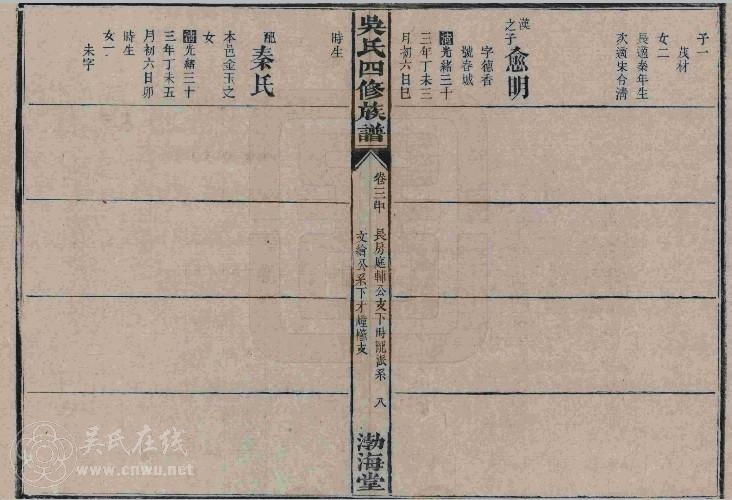 子一
茂材
女二
長適秦年生
次適宋合清
漢
之子
愈明
字德香
號春城
清光緒三十
三年丁未三
月初六日巳
吳氏四修族譜
卷三中
長房庭輔公支下時
派系
八
文繪公系下才
支
渤海堂
時生
配
秦氏
本邑金玉之
女
清光緒三十
三年丁未五
月初六日卯
時生
女一
未字
吴氏在线
www.cnwu.net